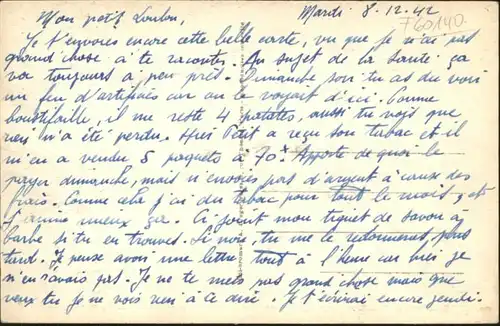 Mardi 8-12-42
Mon petit Loulou,
F60140
Je t'envoies encore cette belle carte, vu que je n'ai pas
grand chose à te raconter. Au sujet de la santé ça
va toujours à peu près. Dimanche soir tu as du voir
un feu d'artifices car on le voyait d'ici. Comme
boustifaille, il me reste 4 patates, aussi tu vois que
rien n'a été perdu. Hier Petit a reçu son tabac et il
m'en a vendu 5 paquets à 70x. Apporte de quoi le
payer dimanche, mais n'envoies pas d'argent à cause des
frais. Comme cela j'ai du tabac pour tout le mois, et
j'aime mieux ça. Ci joint mon tiquet de savon à
barbe si tu en trouves. Si non, tu me le redonneras, plus
tard. Je pense avoir une lettre tout à l'heure car hier je
n'en avais pas. Je ne te mets pas grand chose mais que
veux tu je ne vois rien à ce dire. Je t'écrirai encore jeudi.